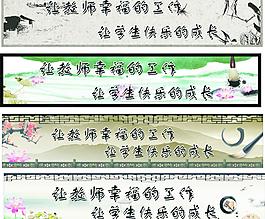 让教师幸福的工作
让学生快乐的成长
让教师幸福的工作
让学生快乐的成长
让教师幸福的工作
让学生快乐的成长
让教师幸福的工作
让学生快乐的成长